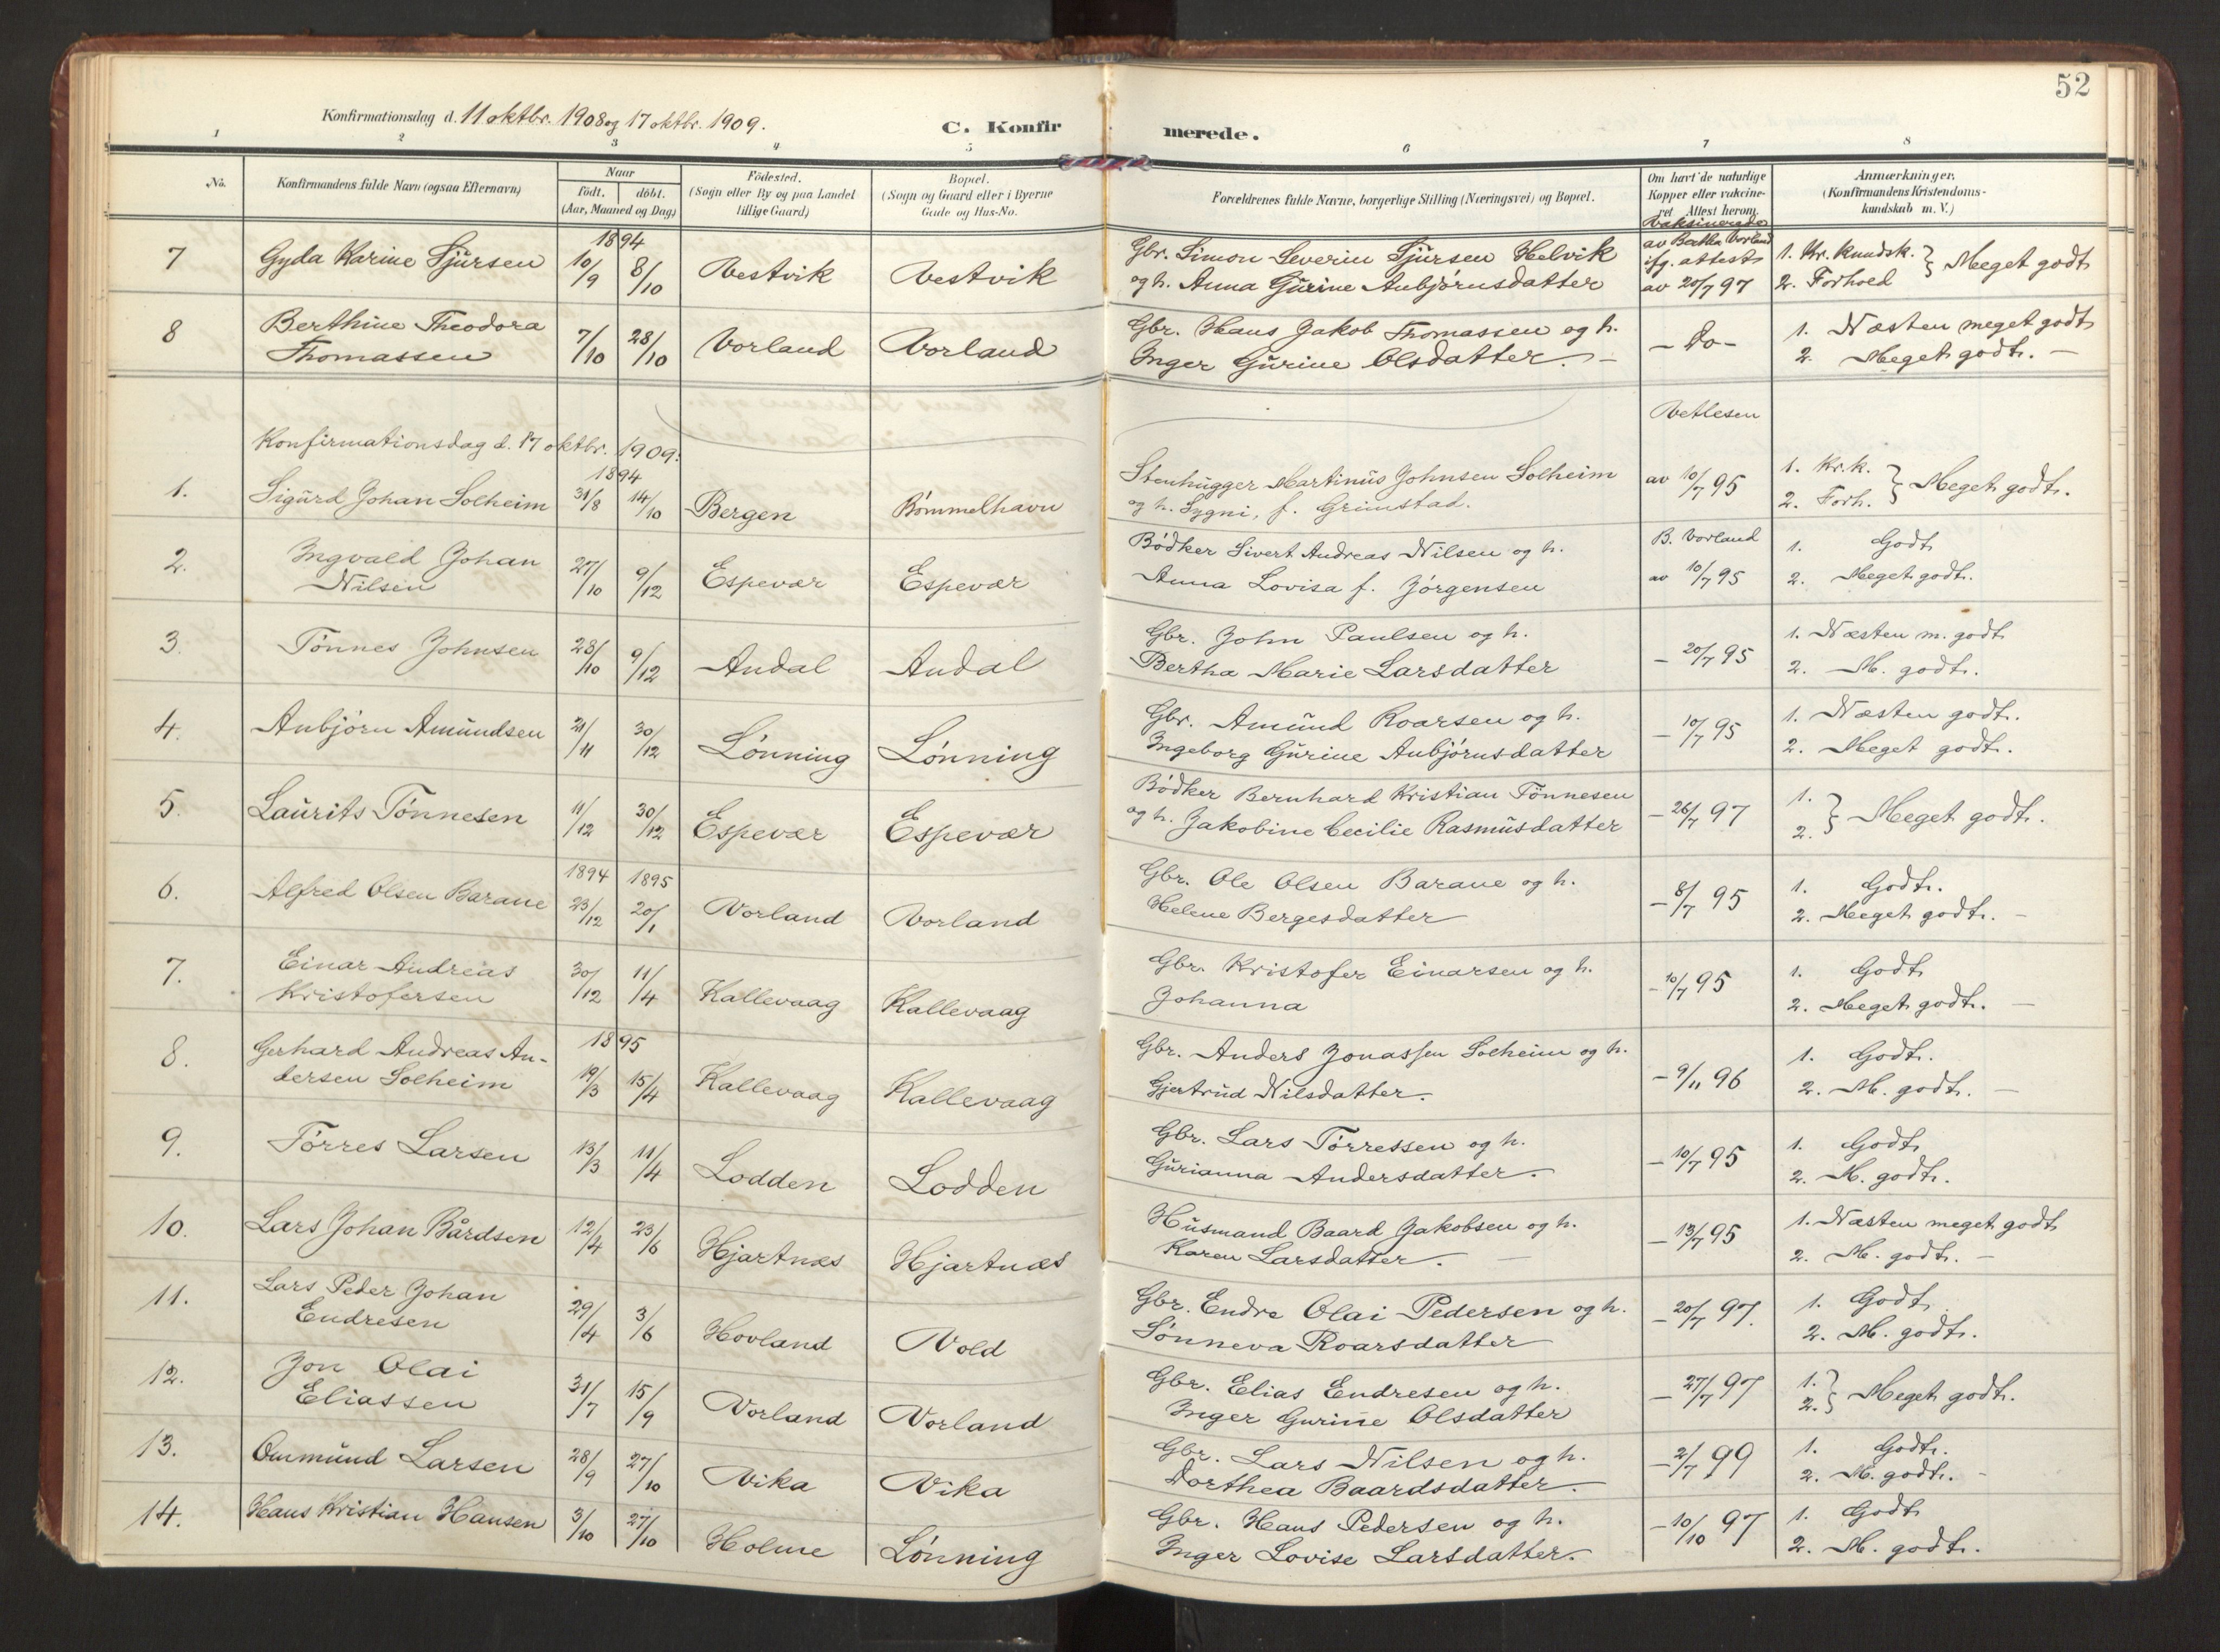 52
Konfirmationsdag d. 11 oktbr. 1908 og 17 oktbr. 1909.
C. Konfirmerede.
1 2 3 4 5 6 7 8
No.
Konfirmandens fulde Navn (ogsaa Efternavn)
Naar
födt. döbt.
(Aar, Maaned og Dag)
Födested.
(Sogn eller By og paa Landet
tillige Gaard)
Bopæl.
(Sogn og Gaard eller i Byerne
Gade og Hus-No.
Forældrenes fulde Navne, borgerlige Stilling (Næringsvei) og Bopæl.
Om havt de naturlige
Kopper eller vakcine-
ret Attest herom.
Anmærkninger.
(Konfirmandens Kristendoms-
kundskab m. V.)
7 Gyda Karine Sjürsen 1894 10/9 8/10 Vestvik Vestvik
Gbr. Simon Severin Sjürsen Helvik
og h. Anna Gürine Aubjørnsdatter
Vaksinerede
av Bertha Vorland
ifg. attest
av 20/7 97
1. Kr. kundsk. } Meget godt
2. Forhold
8 Berthine Theodora
Thomassen 7/10 28/10 Vorland Vorland
Gbr. Hans Jakob Thomassen og h.
Inger Gürine Olsdatter. –
– Do –
1. Næsten meget godt
2. Meget godt. –
Konfirmationsdag d. 17 oktbr. 1909.
Vetlesen
1. Sigürd Johan Solheim 1894 31/8 14/10 Bergen Bömmelhavn
Stenhügger Martinüs Johnsen Solheim
og h. Sygni, f. Grimstad.
av 10/7 95
1. Kr.k. } Meget godt.
2. Forh.
2. Ingvald Johan
Nilsen 27/10 9/12 Espevær Espevær
Bödker Sivert Andreas Nilsen og h.
Anna Lovisa f. Jörgensen
B. Vorland
av 10/7 95
1. Godt
2. Meget godt.
3. Tönnes Johnsen 28/10 9/12 Andal Andal
Gbr. John Paulsen og h.
Bertha Marie Larsdatter
– 20/7 95
1. Næsten m. godt
2. M. godt.
4. Aubjörn Amündsen 21/11 30/12 Lönning Lönning
Gbr. Amünd Roarsen og h.
Ingeborg Gürine Aubjörnsdatter
– 10/7 95
1. Næsten godt.
2. Meget godt.
5. Laürits Tönnesen 11/12 30/12 Espevær Espevær
Bödker Bernhard Kristian Tönnesen
og h. Jakobine Cecilie Rasmüsdatter
– 26/7 97
1. } Meget godt.
2.
6. Alfred Olsen Barane 1894 23/12 1895 20/1 Vorland Vorland
Gbr. Ole Olsen Barane og h.
Helene Bergesdatter
– 8/7 95
1. Godt.
2. Meget godt. –
7. Einar Andreas
Kristofersen 30/12 11/4 Kallevaag Kallevaag
Gbr. Kristofer Einarsen og h.
Johanna
– 10/7 95
1. Godt
2. Meget godt. –
8. Gerhard Andreas An-
dersen Solheim 1895 19/3 15/4 Kallevaag Kallevaag
Gbr. Anders Jonassen Solheim og h.
Gjertrüd Nilsdatter.
– 9/11 96
1. Godt.
2. M. godt. –
9. Törres Larsen 13/3 11/4 Lodden Lodden
Gbr. Lars Törressen og h.
Gürianna Andersdatter.
– 10/7 95
1. Godt
2. M. godt.
10. Lars Johan Bårdsen 12/4 23/6 Hjartnæs Hjartnæs
Hüsmand Baard Jakobsen og h.
Karen Larsdatter. –
– 13/7 95
1. Næsten meget godt
2. M. godt. –
11. Lars Peder Johan
Endresen 29/4 3/6 Hovland Vold
Gbr. Endre Olai Pedersen og h.
Sönneva Roarsdatter
– 20/7 97.
1. Godt
2. M. godt.
12. Jon Olai
Eliassen 31/7 15/9 Vorland Vorland
Gbr. Elias Endresen og h.
Inger Gurine Olsdatter
– 27/7 97
1. } Meget godt.
2.
13. Ommünd Larsen 28/9 27/10 Vika Vika
Gbr. Lars Nilsen og h.
Dorthea Baardsdatter.
– 2/7 99
1. Godt.
2. M. godt. –
14. Hans Kristian Hansen 3/10 27/10 Holme Lönning
Gbr. Hans Pedersen og h.
Inger Lovise Larsdatter.
– 10/10 97
1. Godt
2. M. godt.